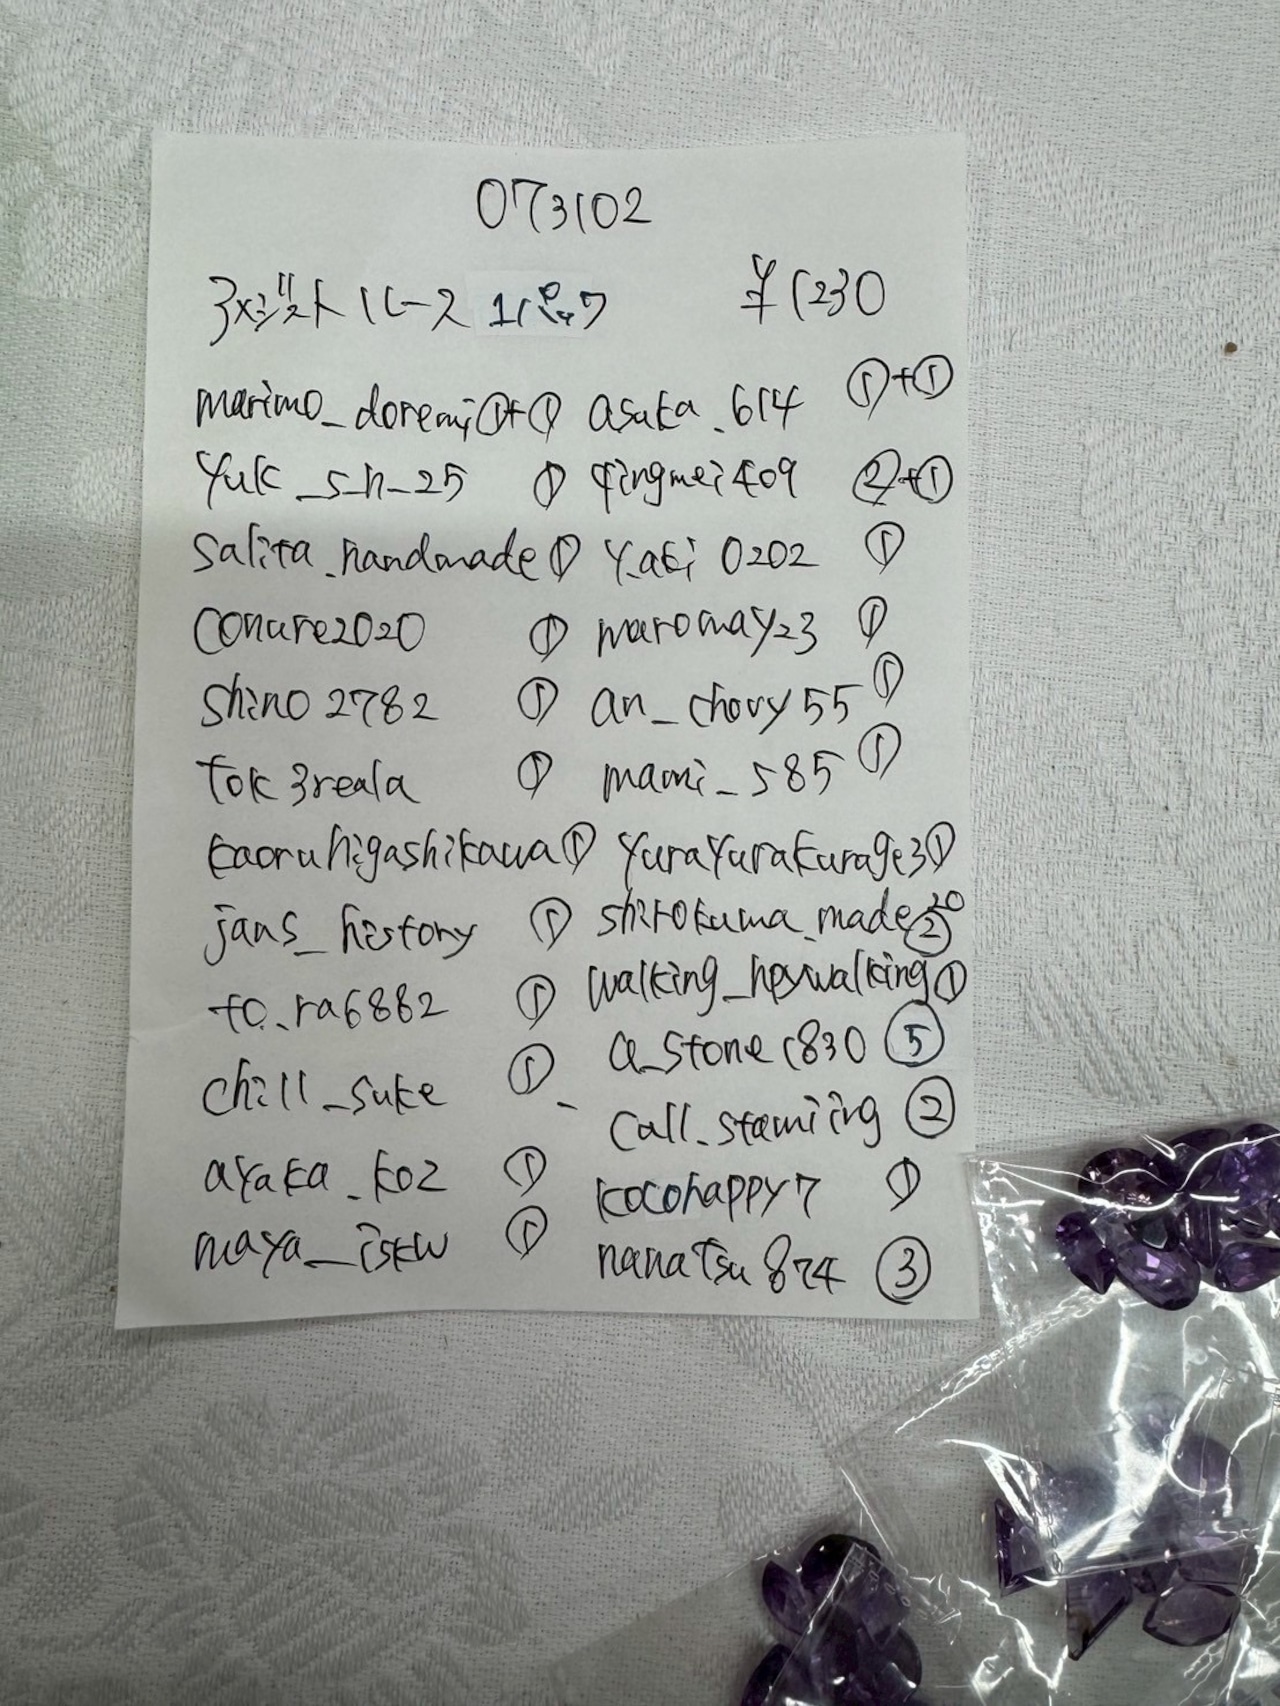 073102
アメジストルース 1パック ¥1230
marimo_doremi ①+①
yuk_s_h_25 ①
salita_handmade ①
conure2020 ①
shino2782 ①
tok3reala ①
kaoruhigashikawa ①
jans_history ①
to.ra6882 ①
chill_suke ①
ayaka_k02 ①
maya_iskw ①
asuka_614 ①+①
qingmei409 ②+①
y.aki0202 ①
maromay23 ①
an_chovy55 ①
mami_s85 ①
yurayurakurage3 ①
shirokuma_made20 ②
walking_heywalking ①
a_stone1830 ⑤
call_stamiing ②
kocohappy7 ①
nanatsu874 ③